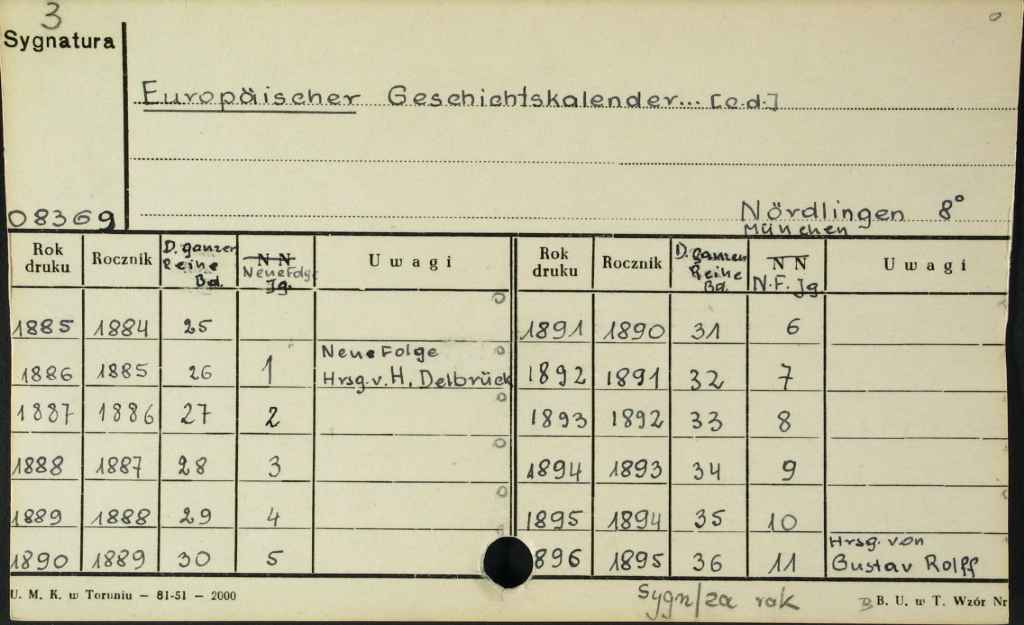 3
Sygnatura
Europäischer Geschichtskalender... [c.d.]
08369
Nördlingen 8°
München
Rok druku Rocznik D. ganzen Reihe Bd. N N Neue Folge Jg. Uwagi Rok druku Rocznik D. ganzen Reihe Bd. N N N.F. Jg Uwagi
1885 1884 25 1891 1890 31 6
1886 1885 26 1 Neue Folge Hrsg. v. H. Delbrück 1892 1891 32 7
1887 1886 27 2 1893 1892 33 8
1888 1887 28 3 1894 1893 34 9
1889 1888 29 4 1895 1894 35 10
1890 1889 30 5 896 1895 36 11 Hrsg. von Gustav Rolff
U. M. K. w Toruniu – 81-51 – 2000
Sygn/za rok
B. U. w T. Wzór Nr